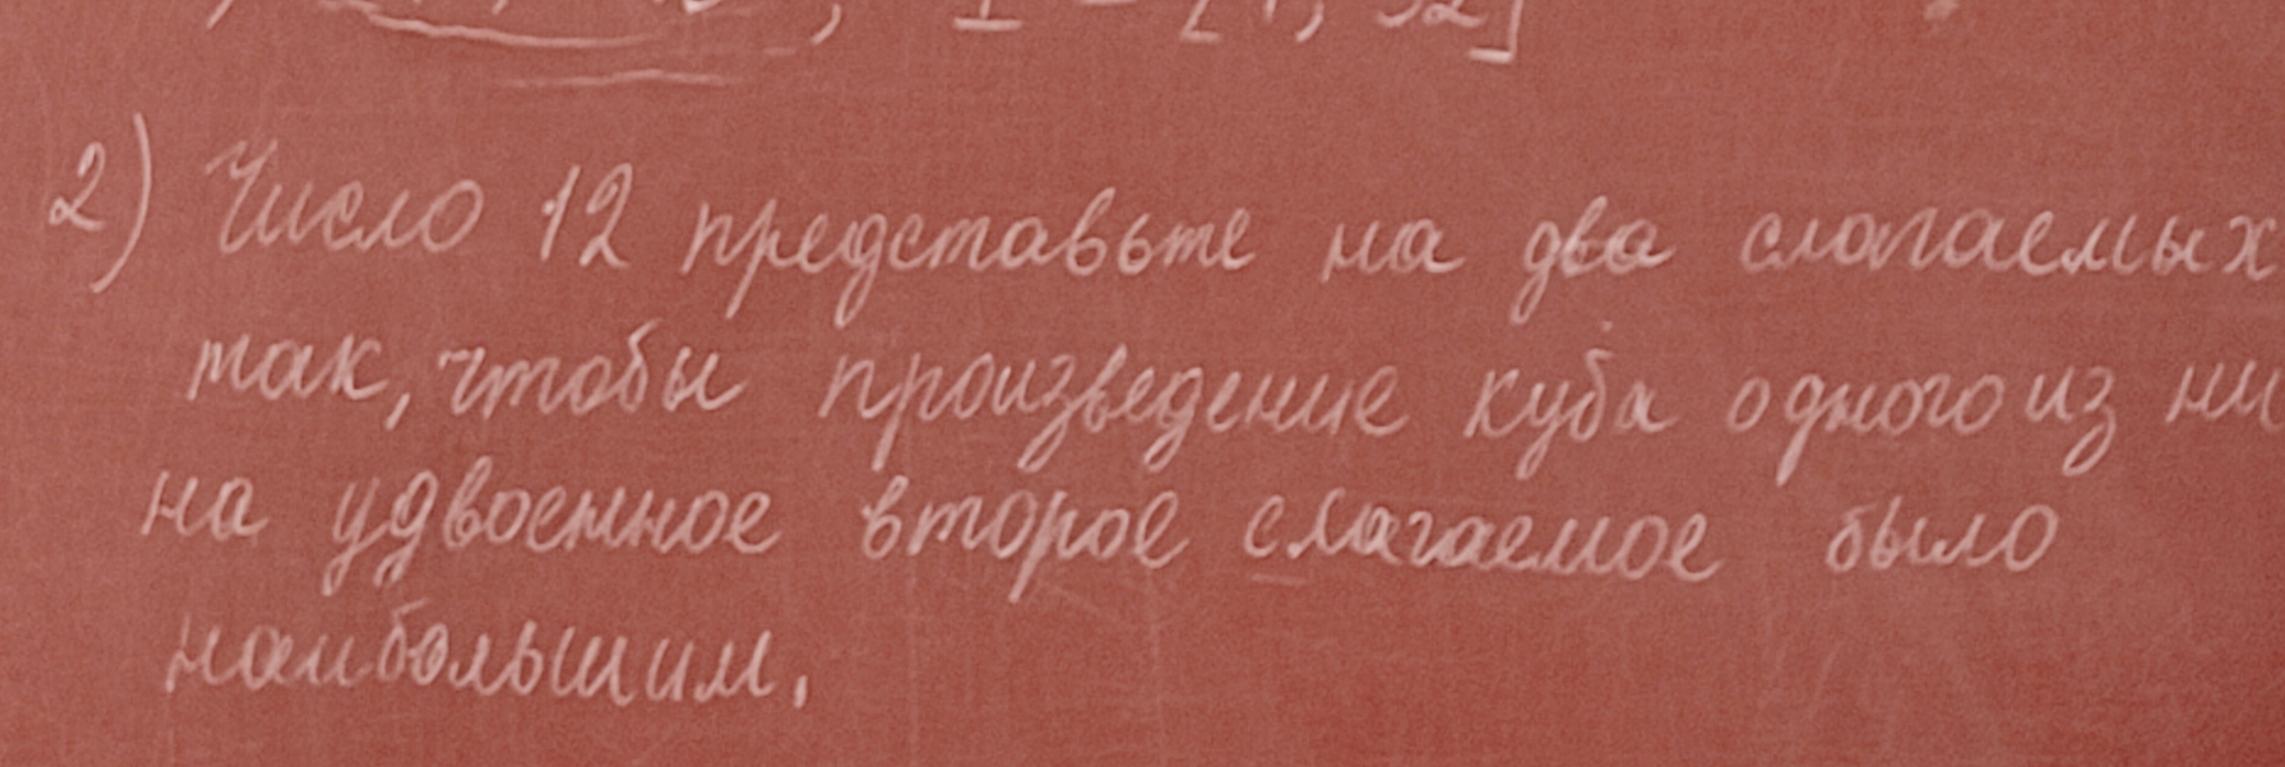 2) Число 12 представьте на два слагаемых
так, чтобы произведение куба одного из
на удвоенное второе слагаемое было
наибольшим.